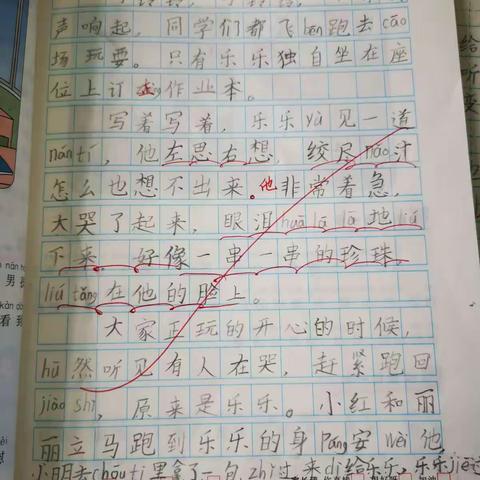 声响起，同学们都飞bēn跑去cāo
场玩耍。只有乐乐独自坐在座
位上订作业本。
写着写着，乐乐yù见一道
nántí，他左思右想，绞尽nǎo汁
怎么也想不出来。他非常着急，
大哭了起来，眼泪huālālā地liú
下来。好像一串一串的珍珠
liútǎng在他的脸上。
大家正玩的开心的时候，
hū然听见有人在哭，赶紧跑回
jiàoshì，原来是乐乐。小红和丽
丽立马跑到乐乐的身páng安wèi他，
小明去chōuti里拿了一包zhǐ过来dì给乐乐，乐乐jiē过